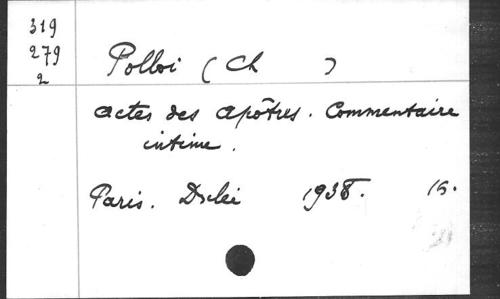 319
279
2
Polloi (Ch )
Actes des Apôtres. Commentaire
intime.
Paris. 1938. 16.